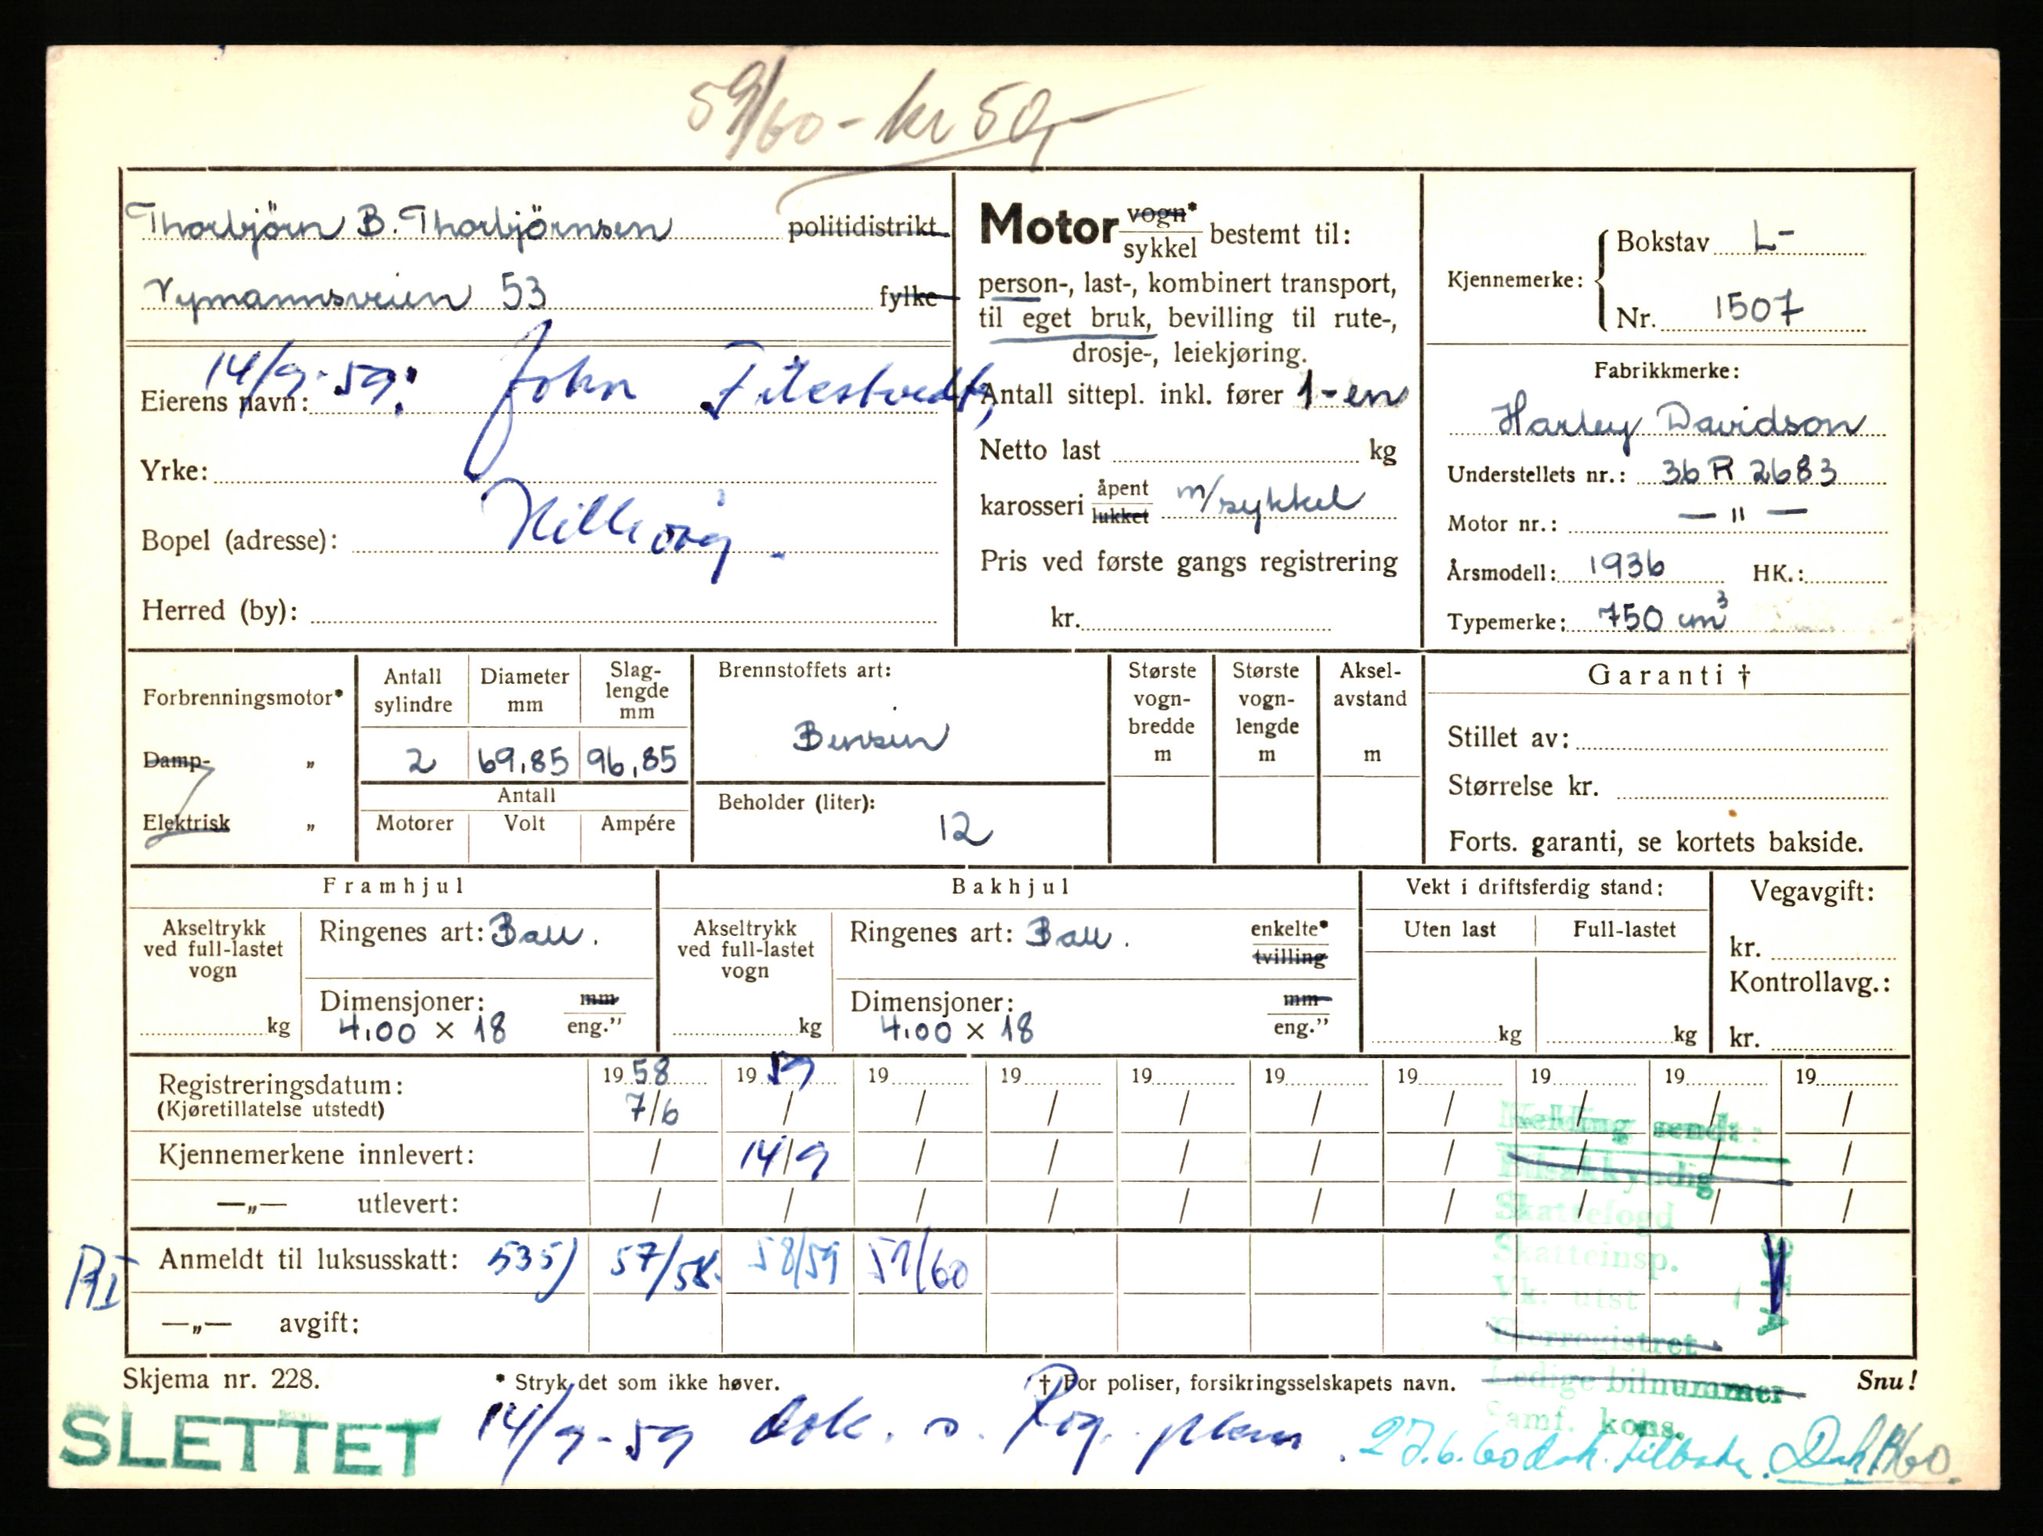 59/60 - kr 50,-
Thorbjörn B. Thorbjörnsen politidistrikt
Nymannsveien 53 fylke
14/9-59: John
Eierens navn:
Yrke:
Bopel (adresse): Hillevåg.
Herred (by):
Motor vogn* sykkel bestemt til:
person-, last-, kombinert transport,
til eget bruk, bevilling til rute-,
drosje-, leiekjøring.
Antall sittepl. inkl. fører 1-en
Netto last kg
karosseri åpent lukket m/sykkel
Pris ved første gangs registrering
kr.
Kjennemerke: Bokstav L-
Nr. 1507
Fabrikkmerke:
Harley Davidson
Understellets nr.: 36 R 2683
Motor nr.: — " —
Årsmodell: 1936 HK.:
Typemerke: 750 cm³
Forbrenningsmotor*
Damp- „
Elektrisk „
Antall sylindre
Diameter mm
Slag-lengde mm
2 69,85 96,85
Antall
Motorer Volt Ampére
Brennstoffets art:
Bensin
Beholder (liter):
12
Største vogn-bredde m
Største vogn-lengde m
Aksel-avstand m
Garanti †
Stillet av:
Størrelse kr.
Forts. garanti, se kortets bakside.
Framhjul
Akseltrykk ved full-lastet vogn
kg
Ringenes art: Ball.
Dimensjoner: mm eng."
4.00 x 18
Bakhjul
Akseltrykk ved full-lastet vogn
kg
Ringenes art: Ball. enkelte* tvilling
Dimensjoner: mm eng."
4.00 x 18
Vekt i driftsferdig stand:
Uten last Full-lastet
kg kg
Vegavgift:
kr.
Kontrollavg.:
kr.
Registreringsdatum: 1958 1959 19 19 19 19 19 19 19 19
(Kjøretillatelse utstedt) 7/6 / / / / / / / / /
Kjennemerkene innlevert: / 14/9 / / / / / / / /
—„— utlevert: / / / / / / / / / /
Anmeldt til luksusskatt: 535) 57/58. 58/59 59/60
—„— avgift:
Melding sendt:
Bilsakkyndig
Skattefogd
Skatteinsp.
Vk. utst
Ledige bilnummer
Samf. kons.
Skjema nr. 228.
* Stryk det som ikke høver.
† For poliser, forsikringsselskapets navn.
Snu!
SLETTET
14/9-59 dok. 27.6.60 dok. tilbake.